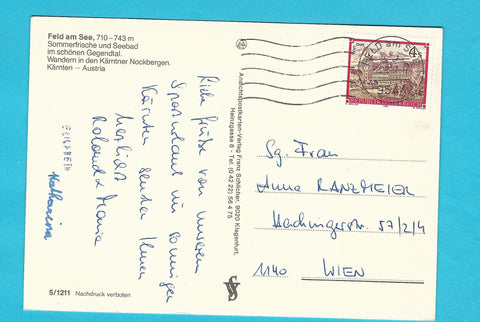 Feld am See, 710–743 m
Sommerfrische und Seebad
im schönen Gegendtal.
Wandern in den Kärntner Nockbergen.
Kärnten – Austria
Liebe Grüße von unserem
Sporturlaub im sonnigen
Kärnten senden Ihnen
herzlichst
Roland + Maria
ELISABETH
Katharina
5/1211 Nachdruck verboten
Ansichtspostkarten-Verlag Franz Schilcher, 9020 Klagenfurt,
Heinzgasse 8 - Tel. (0 42 22) 56 4 75
FELD am SEE
REPUBLIK ÖSTERREICH
Sg. Frau
Anna RANZMEIER
57/2/4
1140 WIEN